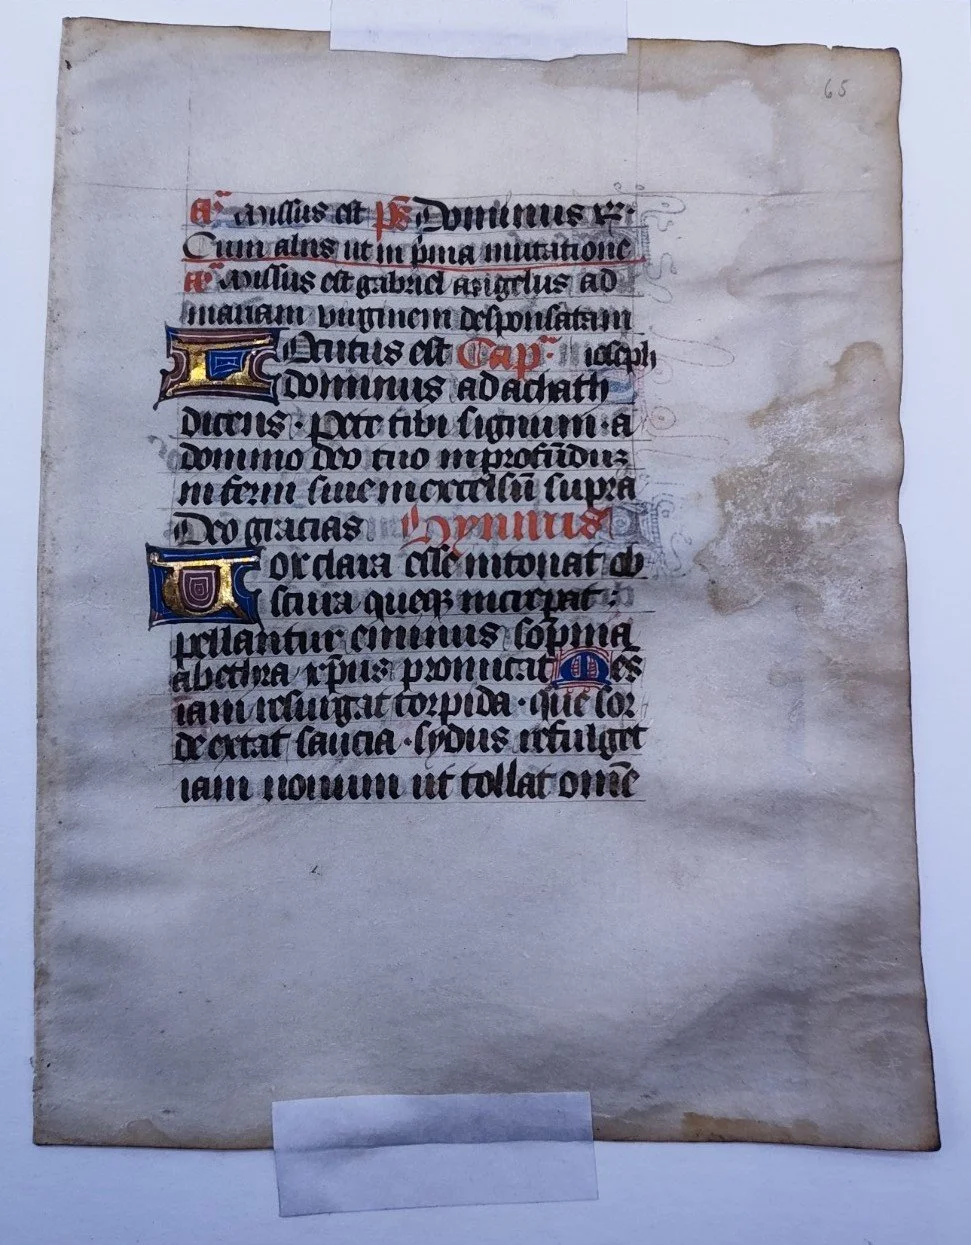 65
añ Missus est ps Dominus rx.
Cum aliis ut in pma mutatione
añ Missus est gabriel angelus ad
mariam virginem desponsatam
Locutus est Cap. ioseph
dominus ad achath
dicens · pete tibi signum · a
domino deo tuo in profūduz
in ferni siue in excelsū supra
Deo gracias hymnus
Vox clara esse intonat ob
scura queqz increpat :
pellantur eminus sompnia
abethra xp̄us promicat Mens
iam resurgat torpida · que sor
de extat saucia · sydus refulget
iam nouum ut tollat omē